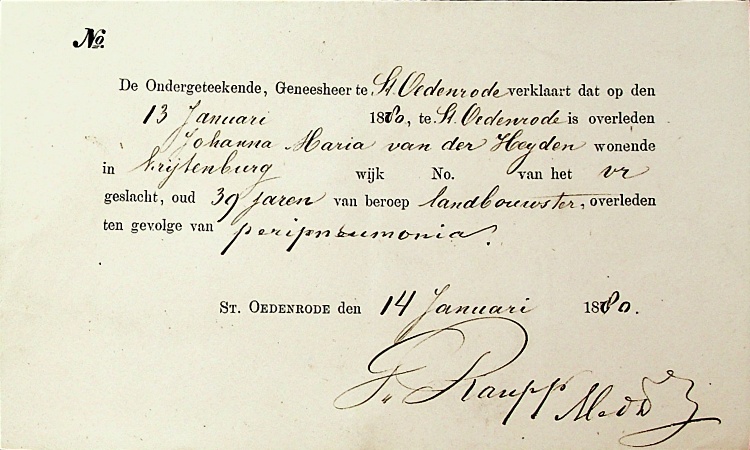 No.
De Ondergeteekende, Geneesheer te St. Oedenrode verklaart dat op den
13 Januari 1880, te St. Oedenrode is overleden
Johanna Maria van der Heyden wonende
in Krijtenburg wijk No. van het vr
geslacht, oud 39 jaren van beroep landbouwster, overleden
ten gevolge van peripneumonia.
St. Oedenrode den 14 Januari 1880.
Fr Raupp Med D